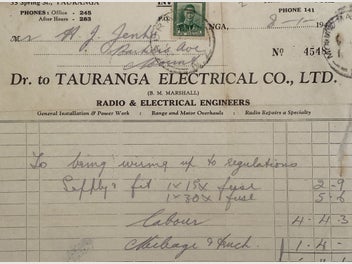 33 Spring St., TAURANGA
PHONES: Office - 245
After Hours - 283
INV
PHONE 141
NGA, 8-1-19
Mr H. J. Jenks
Parkers Ave
Mount
No 454
Dr. to TAURANGA ELECTRICAL CO., LTD.
(B. M. MARSHALL)
RADIO & ELECTRICAL ENGINEERS
General Installation & Power Work : Range and Motor Overhauls : Radio Repairs a Specialty
To being wiring up to regulations
Supply & fit 1x15x fuse 2-9
1x30x fuse 5-6
Labour 4-4-3
Mileage & Truck. 1-4-